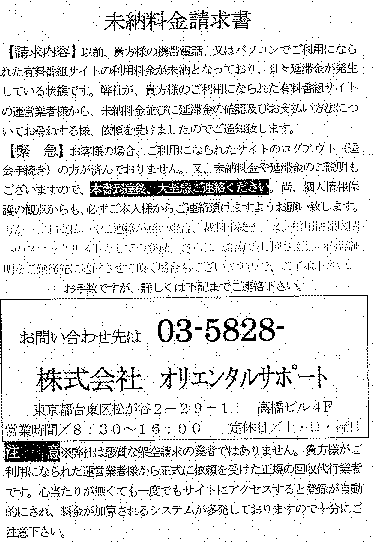 未納料金請求書
【請求内容】以前、貴方様の携帯電話、又はパソコンでご利用になら
れた有料番組サイトの利用料金が未納となっており、日々延滞金が発生
している状態です。弊社が、貴方様のご利用になられた有料番組サイト
の運営業者様から、未納料金並びに延滞金の確認及びお支払い方法につ
いてお尋ねする様、依頼を受けましたのでご通知致します。
【緊　急】お客様の場合、ご利用になられたサイトのログアウト（退
会手続き）の方が済んでおりません。又、未納料金や延滞金のご説明も
ございますので、本書到着後、大至急ご連絡ください。尚、個人情報保
護の観点からも、必ずご本人様からご連絡頂けますようお願い致します。
お手数ですが、詳しくは下記までご連絡下さい。
お問い合わせ先は 03-5828-
株式会社 オリエンタルサポート
東京都台東区松が谷2－29－1 高橋ビル4F
営業時間／8：30～16：00 定休日／土・日・祝日
注　意※弊社は悪質な架空請求の業者ではありません。貴方様がご
利用になられた運営業者様から正式に依頼を受けた正規の回収代行業者
です。心当たりが無くても一度でもサイトにアクセスすると登録が自動
的にされ、料金が加算されるシステムが多発しておりますので十分にご
注意下さい。